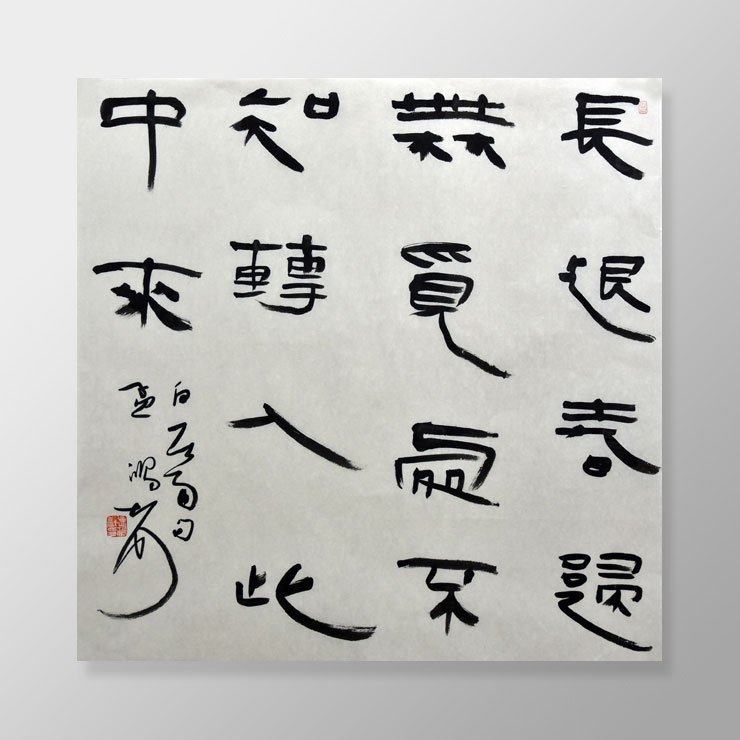 長恨春歸
無覓處不
知轉入此
中來
白居易句
孟鴻